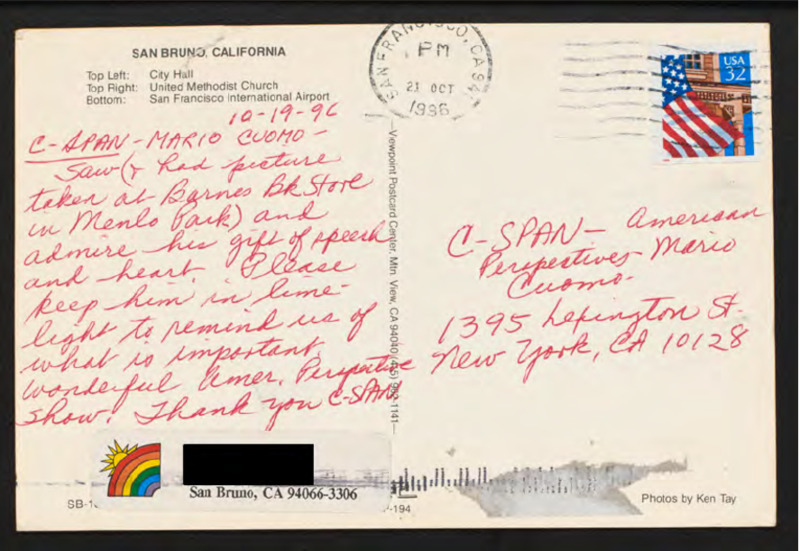 SAN BRUNO, CALIFORNIA
Top Left: City Hall
Top Right: United Methodist Church
Bottom: San Francisco International Airport
10-19-96
C-SPAN-MARIO CUOMO-
Saw (& had picture
taken at Barnes Bk Store
in Menlo Park) and
admire his gift of speech
and heart. Please
keep him in lime-
light to remind us of
what is important
wonderful Amer. Perspective
show! Thank you C-SPAN
San Bruno, CA 94066-3306
SB-1
Viewpoint Postcard Center, Mtn. View, CA 94040 (415) 1141
SAN FRANCISCO, CA 941
PM
21 OCT
1996
USA
32
C-SPAN- American
Perspectives Mario
Cuomo-
1395 Lexington St.
New York, CA 10128
-194
Photos by Ken Tay